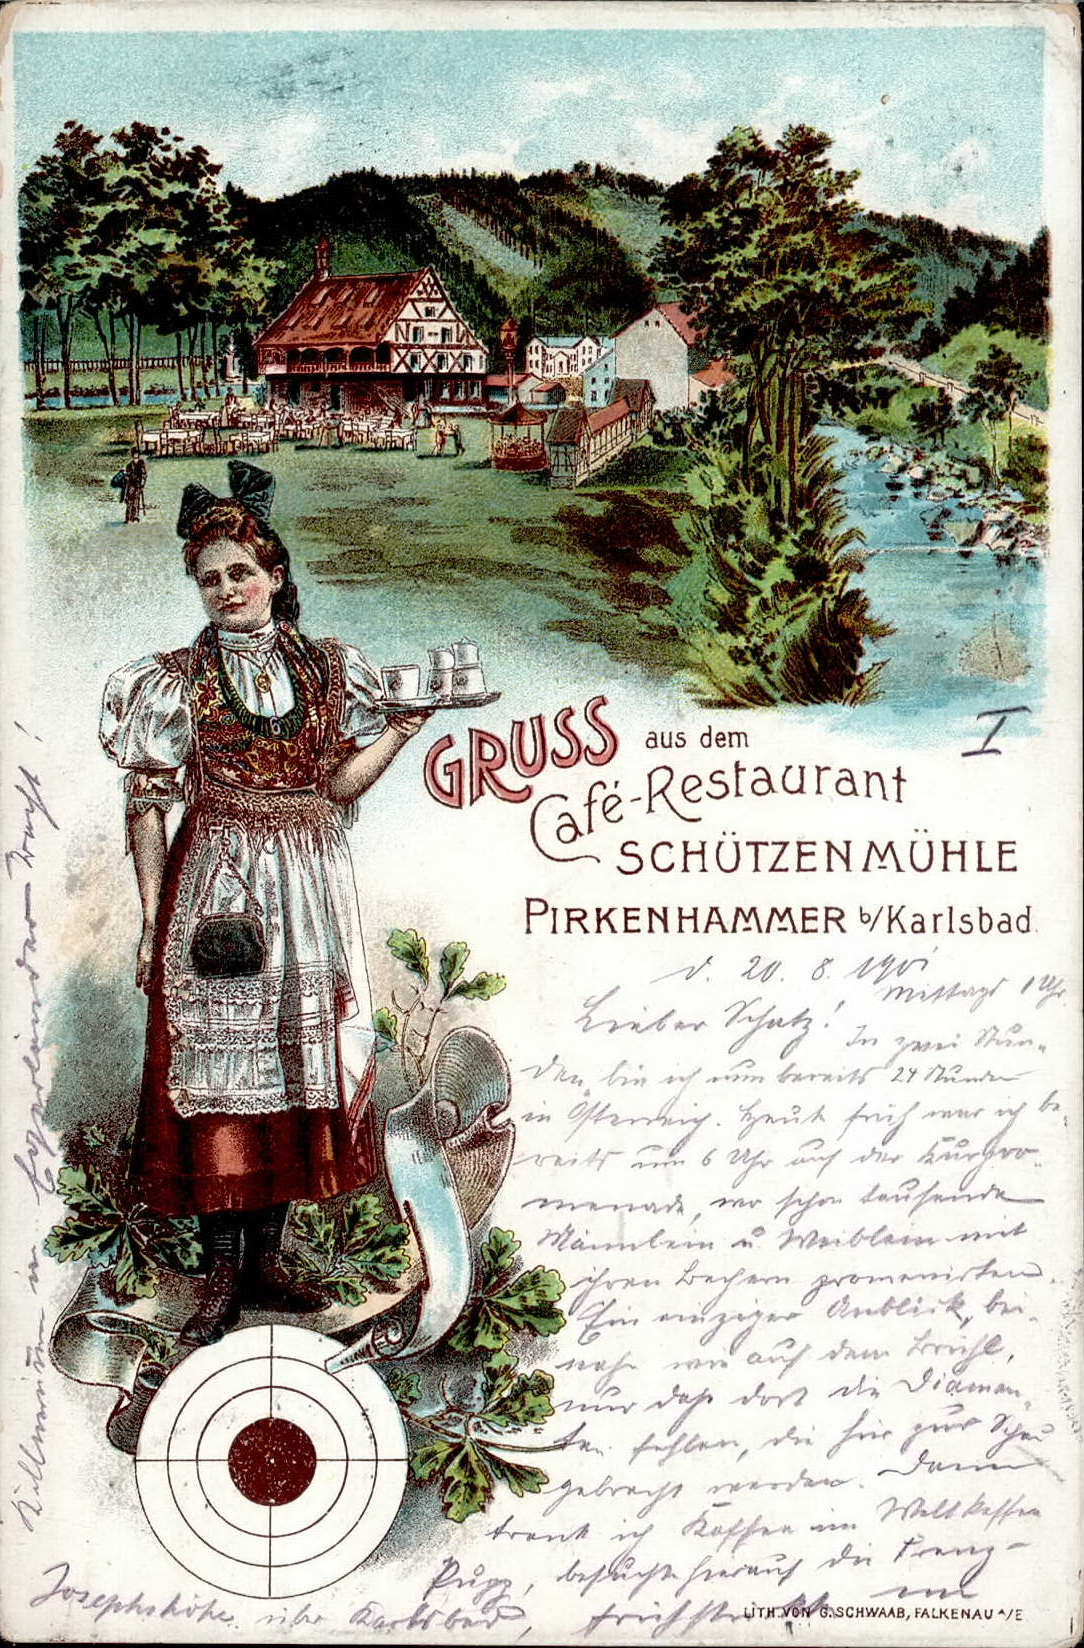 GRUSS aus dem
Café-Restaurant
SCHÜTZENMÜHLE
PIRKENHAMMER b/Karlsbad.
I
d. 20. 8. 1901
Mittags 1 Uhr
Lieber Schatz!
In zwei Stun-
den bin ich nun bereits 24 Stunden
in Österreich. Heute früh war ich be-
reits um 6 Uhr auf der Kurpro-
menade, wo schon tausende
Männlein u. Weiblein mit
ihren Bechern promenirten.
Ein einziger Anblick, bei-
nahe wie auf dem Brühl,
nur daß dort die Diaman-
ten fehlen, die hier zur Schau
gebracht werden. Dann
trank ich Kaffee im
Pupp, besuchte hierauf die
Josephshöhe über Karlsbad, frühstückte im
Kellnerin in Egerländer Tracht!
LITH. VON G. SCHWAAB, FALKENAU A/E